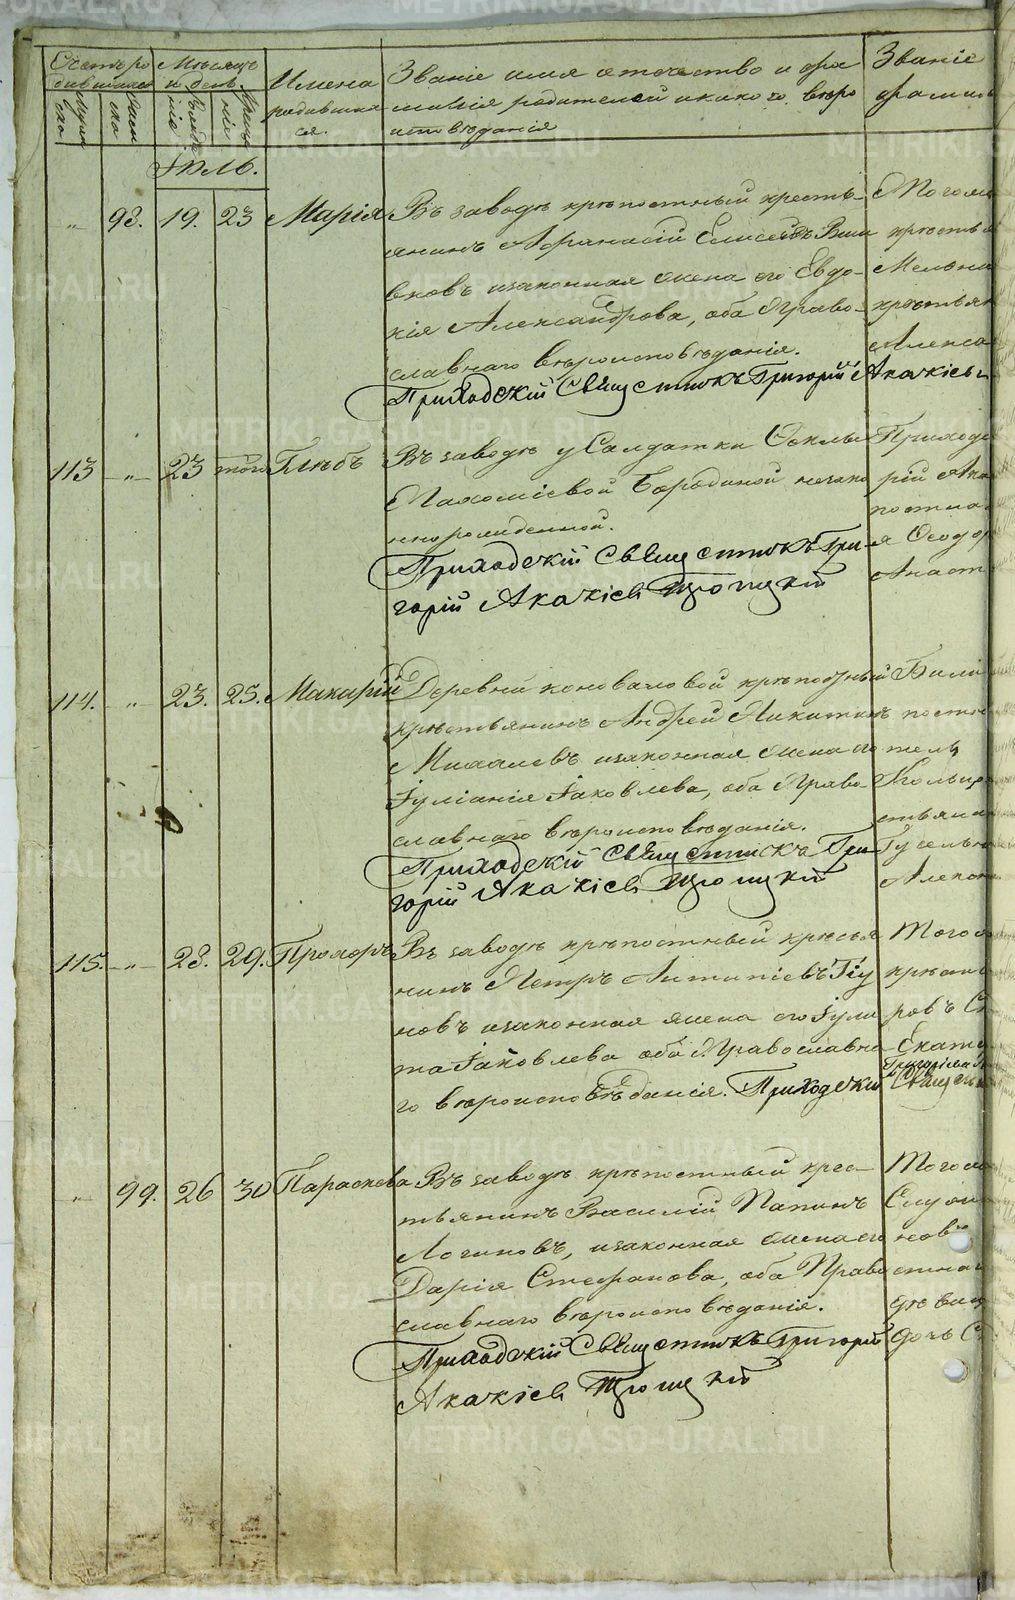 Счетъ ро
дившихся
Муже
ска
Жен
ска
Мѣсяцъ
и день
рожде
нія
креще
нія
Имена
родивших
ся.
Званіе имя отечество и фа
милія родителей и како го вѣро
исповѣданія
Званіе
фамил
Іюль.
„ 98. 19. 23 Марія
Въ заводѣ крѣпостный кресть
янинъ Афанасій Елисеевъ
вновъ изаконная жена его Евдо
кія Александрова, оба Право
славнаго вѣроисповѣданія.
Приходскій Священникъ Григорій Акакіевъ
Тогоже
крестья
Мельни
крестьян
Алекса
113 „ 23 того Глѣбъ
Въ заводѣ у Салдатки Феклы
Пахоміевой Бородиной незако
ннорожденной.
Приходскій Священникъ Гри
горій Акакіевъ Троицкій
Приходс
рій Ака
постна
я Ѳеодор
Анаст
114. „ 23. 25. Макарій
Деревни Коноваловой крѣпостный
крестьянинъ Андрей Никитинъ
Михалевъ изаконная жена его
Іуліанія Іаковлева, оба Право
славнаго вѣроисповѣданія.
Приходскій Священникъ Гри
горій Акакіевъ Троицкій
Били
постн
тель
Кольцо
стьяни
Гусельн
Алексан
115. „ 28. 29. Прохоръ
Въ заводѣ крѣпостный крестья
нинъ Петръ Антипіевъ Гіу
новъ изаконная жена его Іули
та Іаковлева оба Православна
го вѣроисповѣданія. Приходскій Священ
Григорій
Тогоже
крѣпост
ровъ Ст
Екате
„ 99. 26 30 Параскева
Въ заводѣ крѣпостный крес
тьянинъ Василій Папинъ
Логиновъ, изаконная жена его
Дарія Стефанова, оба Право
славнаго вѣроисповѣданія.
Приходскій Священникъ Григорій
Акакіевъ Троицкій
Тогоже
Служи
новъ
стнаг
дѣвиц
дочь С
METRIKI.GASO-URAL.RU